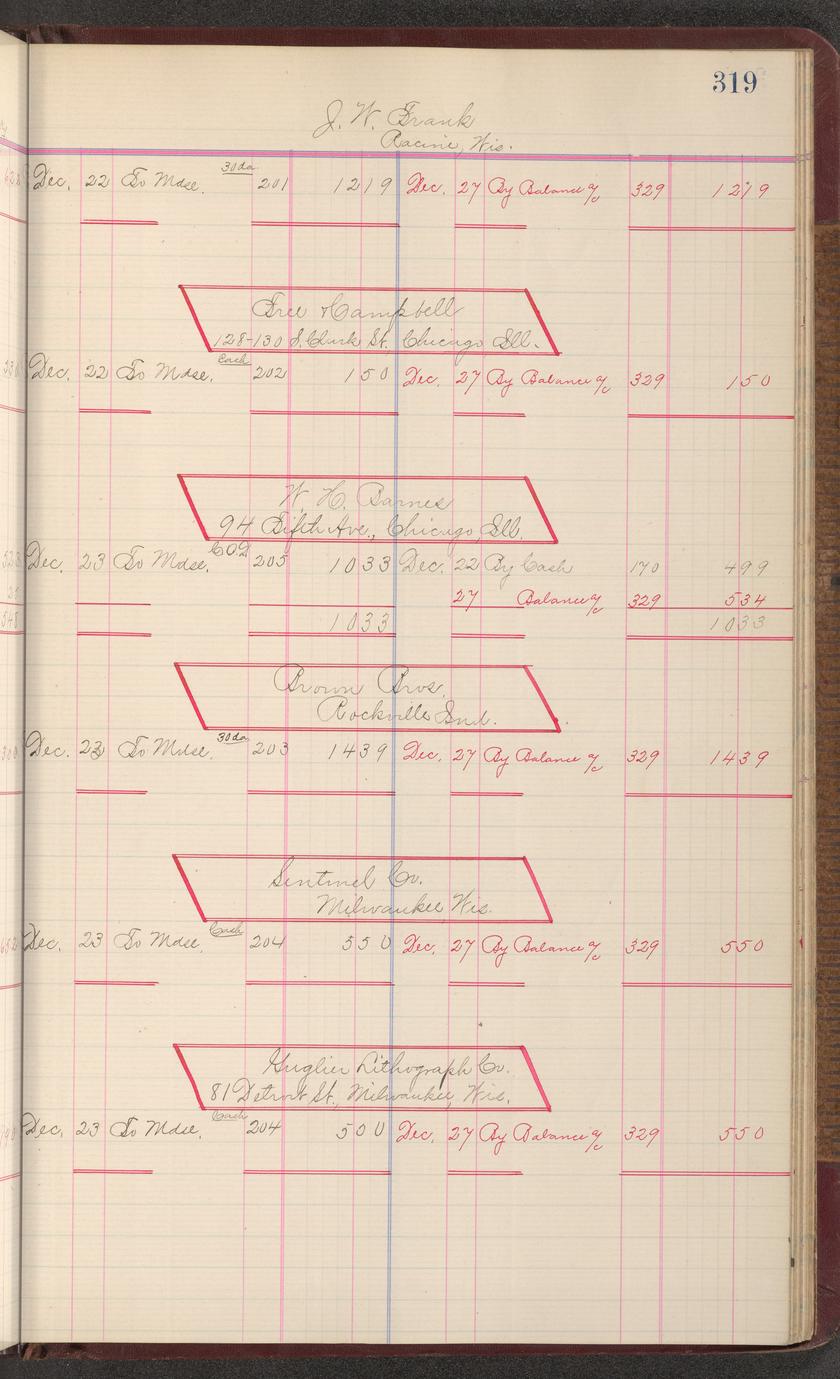 319
J. W. Frank
Racine, Wis.
Dec. 22 To Mdse. 30 da 201 1219 Dec. 27 By Balance a/c 329 1219
Free & Campbell
128-130 S. Clark St. Chicago Ill.
Dec. 22 To Mdse. Cash 202 150 Dec. 27 By Balance a/c 329 150
W. H. Barnes
94 Fifth Ave., Chicago, Ill.
Dec. 23 To Mdse. C.O.D. 205 1033 Dec. 22 By Cash 170 499
27 Balance a/c 329 534
1033 1033
Brown Bros.
Rockville Ind.
Dec. 23 To Mdse. 30 da 203 1439 Dec. 27 By Balance a/c 329 1439
Sentinel Co.
Milwaukee, Wis.
Dec. 23 To Mdse. Cash 204 550 Dec. 27 By Balance a/c 329 550
Gugler Lithograph Co.
81 Detroit St., Milwaukee, Wis.
Dec. 23 To Mdse. Cash 204 500 Dec. 27 By Balance a/c 329 550